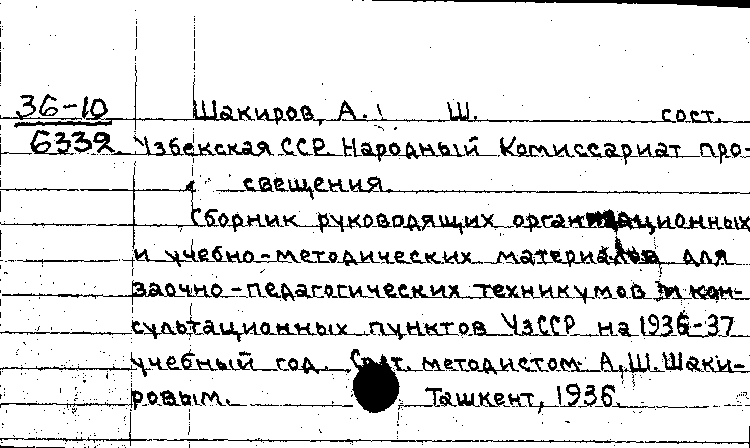 36-10 Шакиров, А. Ш. сост.
6332. Узбекская ССР. Народный Комиссариат про-
свещения.
Сборник руководящих организационных
и учебно-методических материалов для
заочно-педагогических техникумов и кон-
сультационных пунктов УзССР на 1936-37
учебный год. Сост. методистом А.Ш. Шаки-
ровым. Ташкент, 1936.